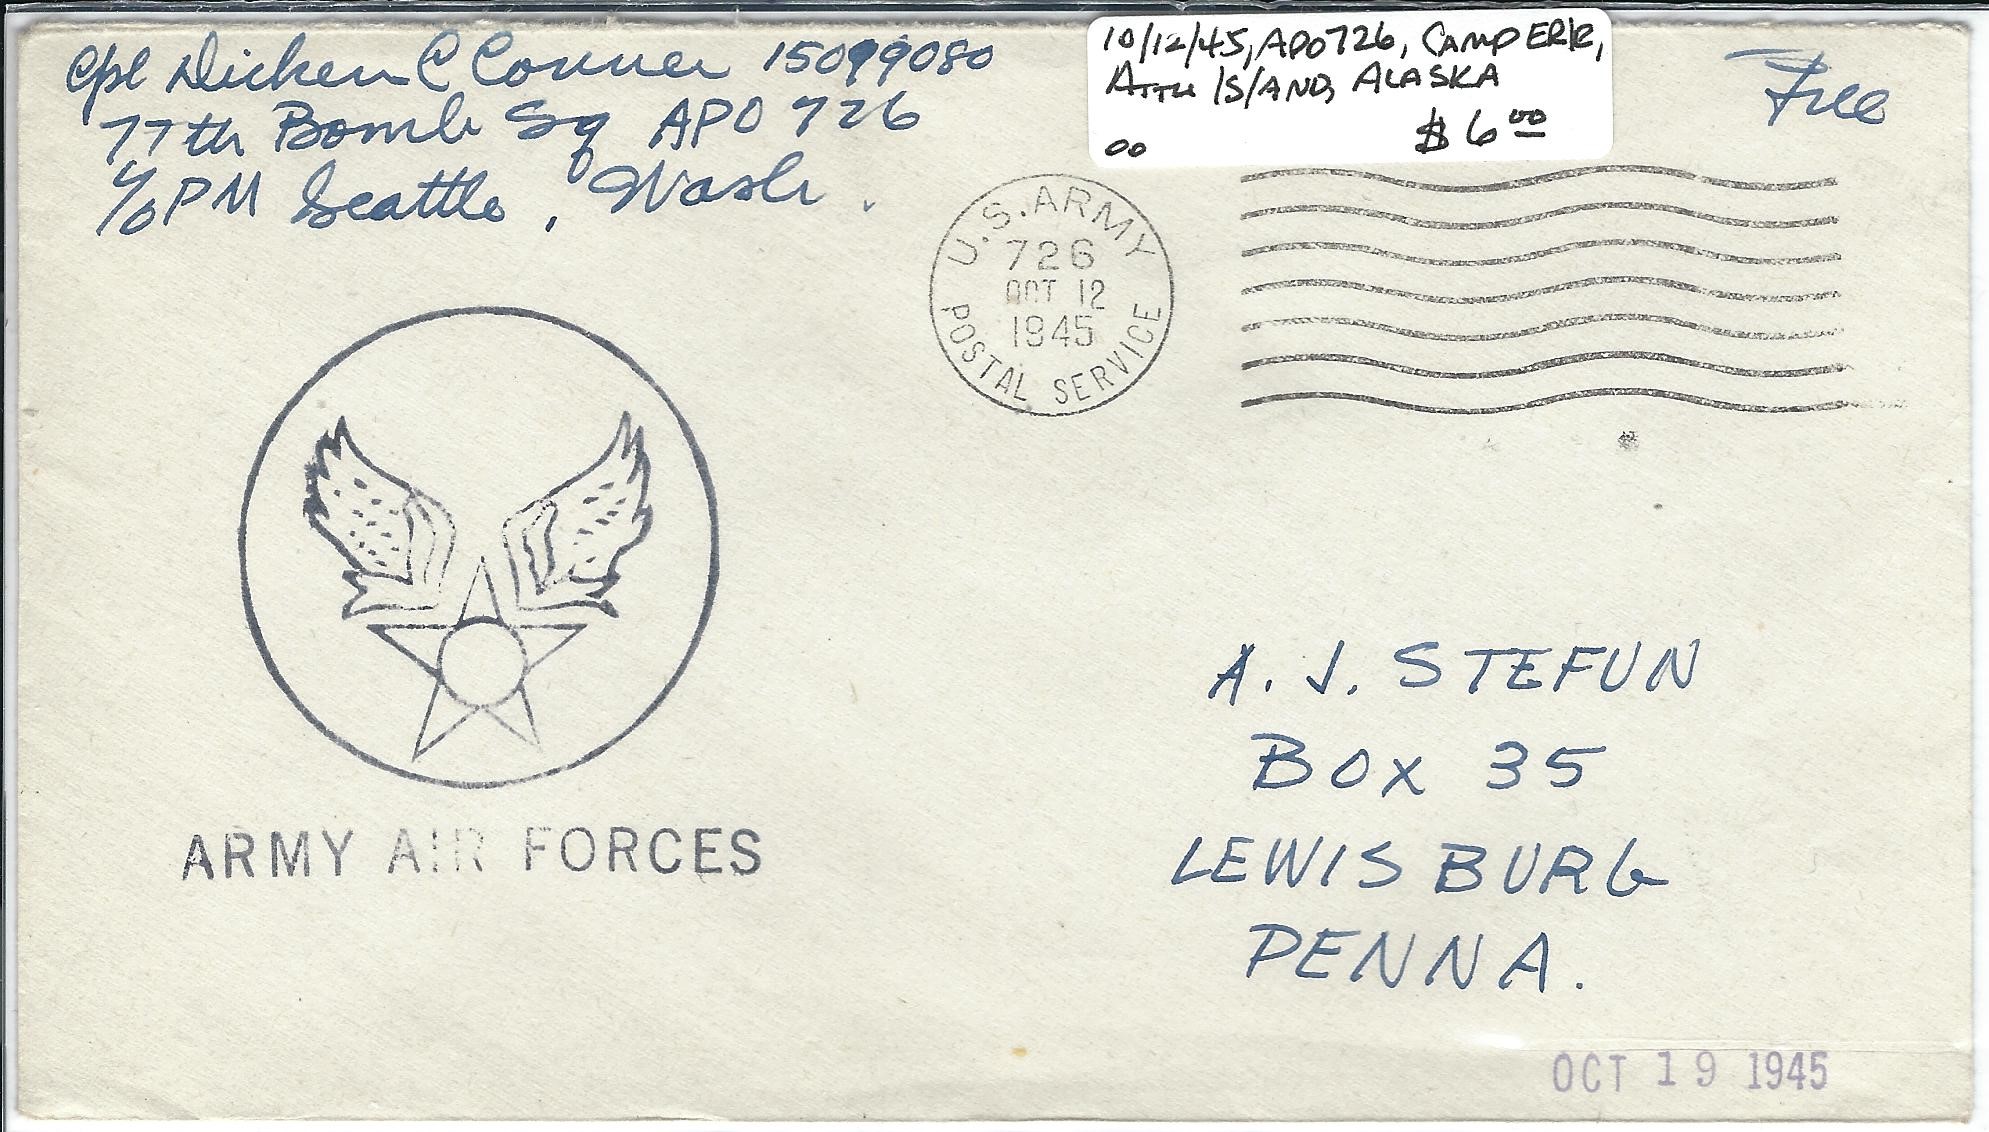 Cpl Dicken C Conner 15099080
77th Bomb Sq APO 726
c/o PM Seattle, Wash.
10/12/45, APO 726, CAMP ERK,
ATTU ISLAND, ALASKA
00 $6 00
Free
U.S. ARMY
726
OCT 12
1945
POSTAL SERVICE
ARMY AIR FORCES
A. J. STEFUN
BOX 35
LEWISBURG
PENNA.
OCT 19 1945